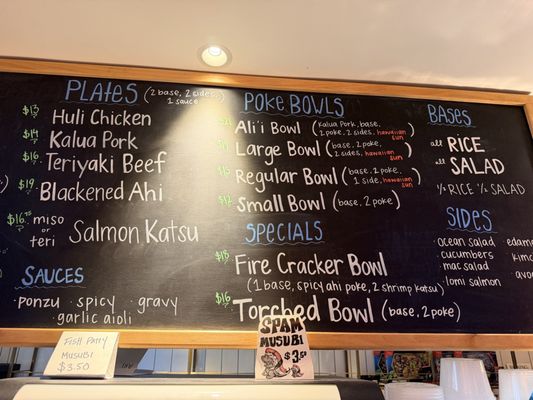 PLATES (2 base, 2 sides, 1 sauce)
$13 Huli Chicken
$14 Kalua Pork
$16 Teriyaki Beef
$19 Blackened Ahi
$16.75 miso or teri Salmon Katsu
SAUCES
· ponzu · spicy · gravy
· garlic aioli
POKE BOWLS
Ali'i Bowl (Kalua Pork, base, 2 poke, 2 sides, hawaiian sun)
Large Bowl (base, 2 poke, 2 sides, hawaiian sun)
Regular Bowl (base, 2 poke, 1 side, hawaiian sun)
$12 Small Bowl (base, 2 poke)
SPECIALS
$18 Fire Cracker Bowl
(1 base, spicy ahi poke, 2 shrimp katsu)
$16 Torched Bowl (base, 2 poke)
BASES
all RICE
all SALAD
½ RICE ½ SALAD
SIDES
· ocean salad
· cucumbers
· mac salad
· lomi salmon
· edam
· kimc
· avo
FISH PATTY
MUSUBI
$3.50
SPAM
MUSUBI
$3.50